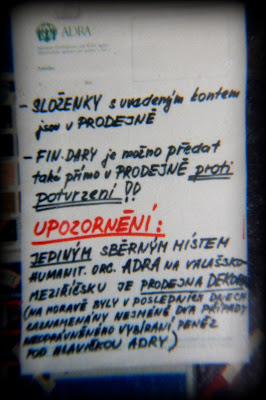 ADRA
- SLOŽENKY s uvedeným kontem
jsou v PRODEJNĚ
- FIN. DARY je možno předat
také přímo v PRODEJNĚ proti
potvrzení !!
UPOZORNĚNÍ:
JEDINÝM SBĚRNÝM MÍSTEM
HUMANIT. ORG. ADRA NA VALAŠSKO-
MEZIŘÍČSKU JE PRODEJNA DEKOR
(NA MORAVĚ BYLY V POSLEDNÍCH DNECH
ZAZNAMENÁNY NEJMÉNĚ DVA PŘÍPADY
NEOPRÁVNĚNÉHO VYBÍRÁNÍ PENĚZ
POD HLAVIČKOU ADRY)